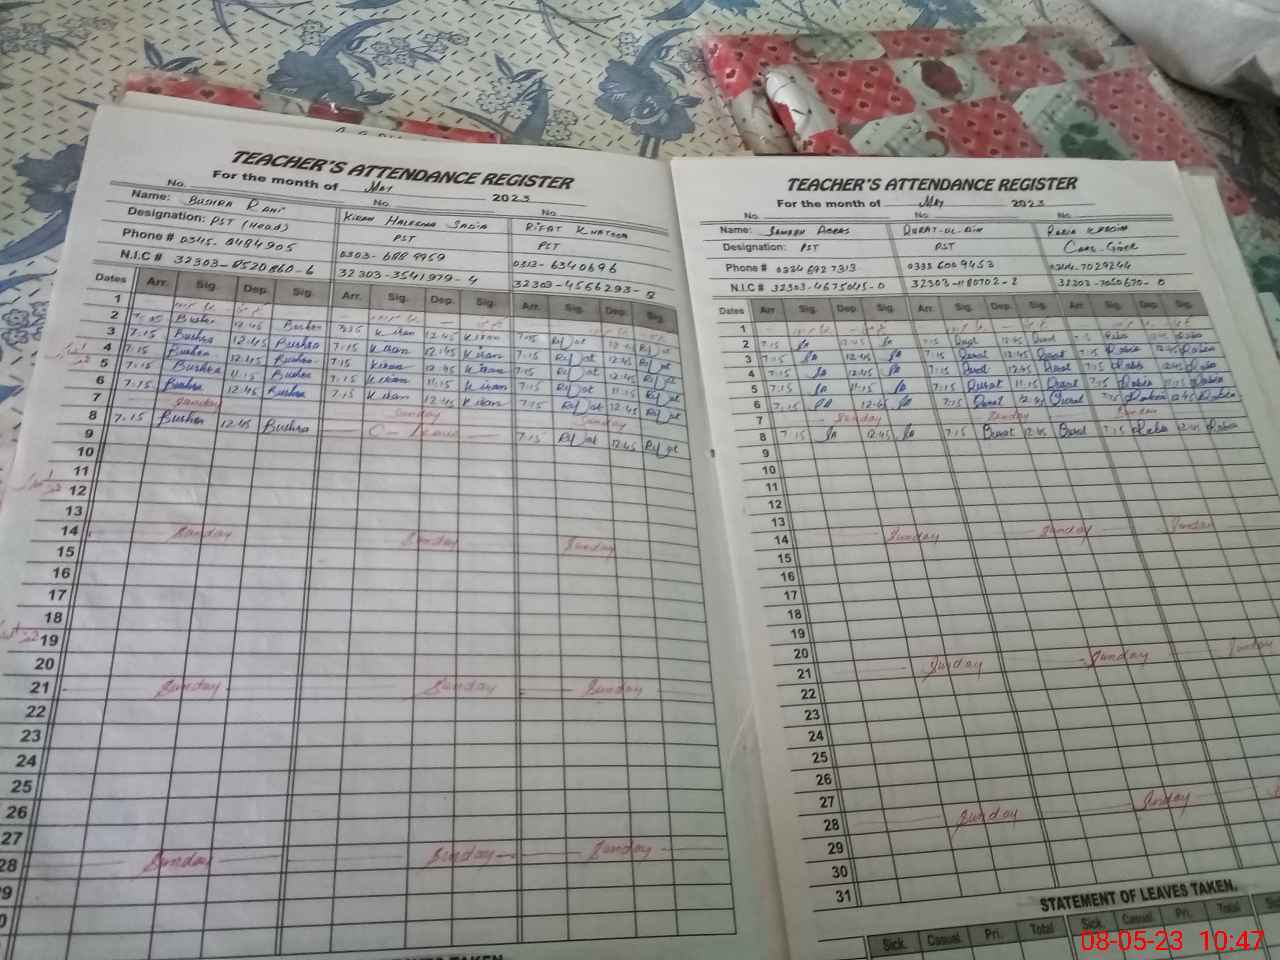 TEACHER'S ATTENDANCE REGISTER
For the month of May 2023
No. No. No.
Name: BUSHRA RANI KIRAN HALEEMA SADIA RIFAT KHATOON
Designation: PST (Head) PST PST
Phone # 0345-0484905 0303-6889959 0313-6340696
N.I.C # 32303-0520860-6 32303-3541979-4 32303-4566293-8
Dates Arr. Sig. Dep. Sig. Arr. Sig. Dep. Sig. Arr. Sig. Dep. Sig.
1
2 7:05 Bushra 12:45 Bushra 7:15 Kiran 12:45 Kiran 7:15 Rifat 12:45 Rifat
3 7:15 Bushra 12:45 Bushra 7:15 Kiran 12:45 Kiran 7:15 Rifat 12:45 Rifat
4 7:15 Bushra 12:45 Bushra 7:15 Kiran 12:45 Kiran 7:15 Rifat 12:45 Rifat
5 7:15 Bushra 11:15 Bushra 7:15 Kiran 11:15 Kiran 7:15 Rifat 11:15 Rifat
6 7:15 Bushra 12:45 Bushra 7:15 Kiran 12:45 Kiran 7:15 Rifat 12:45 Rifat
7 Sunday Sunday Sunday
8 7:15 Bushra 12:45 Bushra C-Leave 7:15 Rifat 12:45 Rifat
9
10
11
12
13
14 Sunday Sunday Sunday
15
16
17
18
19
20
21 Sunday Sunday Sunday
22
23
24
25
26
27
28 Sunday Sunday Sunday
TEACHER'S ATTENDANCE REGISTER
For the month of May 2023
No. No. No.
Name: Abbas QURAT-UL-AIN RABIA
Designation: PST PST Care Giver
Phone # 0334 6927313 0333 6009453 7029244
N.I.C # 32303-4675045-0 32303-1180702-2 32303-7050670-0
Dates Arr. Sig. Dep. Sig. Arr. Sig. Dep. Sig. Arr. Sig. Dep. Sig.
1
2 7:15 12:45 7:15 Qurat 12:45 Qurat Rabia
3 7:15 12:45 7:15 Qurat 12:45 Qurat 7:15 Rabia 12:45 Rabia
4 7:15 12:45 7:15 Qurat 12:45 Qurat 7:15 Rabia 12:45 Rabia
5 7:15 11:15 7:15 Qurat 11:15 Qurat 7:15 Rabia 11:15 Rabia
6 7:15 12:45 7:15 Qurat 12:45 Qurat 7:15 Rabia 12:45 Rabia
7 Sunday Sunday Sunday
8 7:15 12:45 7:15 Qurat 12:45 Qurat 7:15 Rabia 12:45 Rabia
9
10
11
12
13
14 Sunday Sunday Sunday
15
16
17
18
19
20
21 Sunday Sunday Sunday
22
23
24
25
26
27
28 Sunday Sunday
29
30
31
STATEMENT OF LEAVES TAKEN.
Sick. Casual. Pri. Total Sick. Casual. Pri. Total
08-05-23 10:47